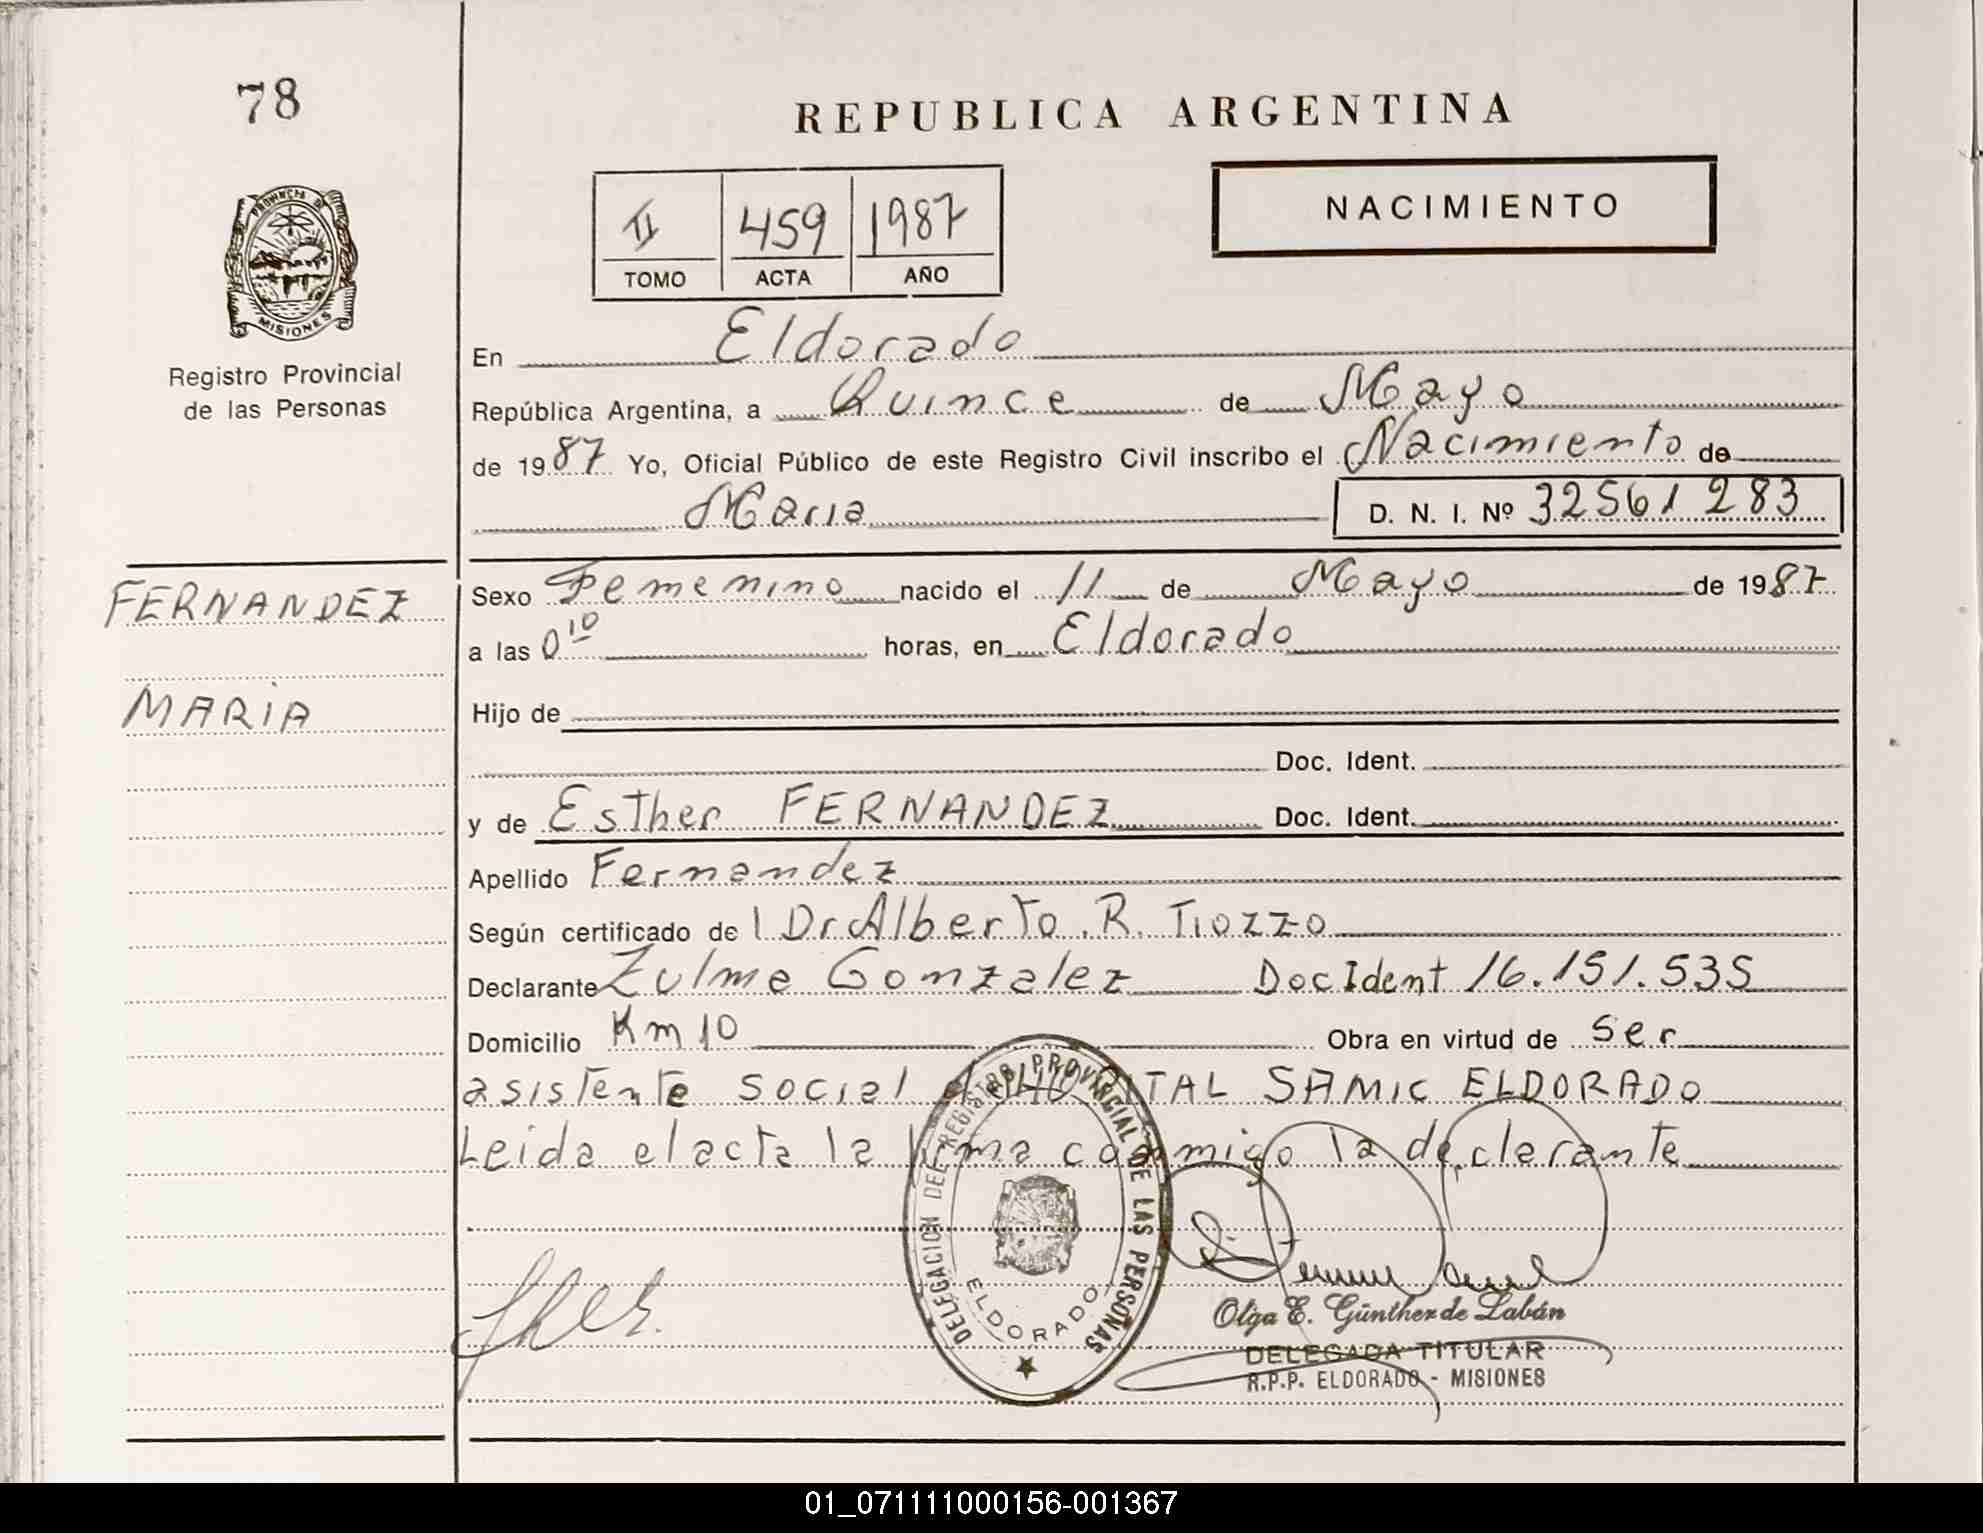 78
REPUBLICA ARGENTINA
PROVINCIA D
MISIONES
Registro Provincial
de las Personas
NACIMIENTO
II 459 1987
TOMO ACTA AÑO
En Eldorado
República Argentina, a Quince de Mayo
de 1987 Yo, Oficial Público de este Registro Civil inscribo el Nacimiento de
Maria
D. N. I. Nº 32561283
FERNANDEZ
MARIA
Sexo Femenino nacido el 11 de Mayo de 1987
a las 0 10 horas, en Eldorado
Hijo de
Doc. Ident.
y de Esther FERNANDEZ Doc. Ident.
Apellido Fernandez
Según certificado de l Dr Alberto. R. Tiozzo
Declarante Zulma Gonzalez Doc Ident 16.151.535
Domicilio Km 10 Obra en virtud de ser
asistente social del HOSPITAL SAMIC ELDORADO
Leida el acta la firma conmigo la declarante
DELEGACION DEL REGISTRO PROVINCIAL DE LAS PERSONAS
ELDORADO
Olga E. Günther de Labán
DELEGADA TITULAR
R.P.P. ELDORADO - MISIONES
01_071111000156-001367